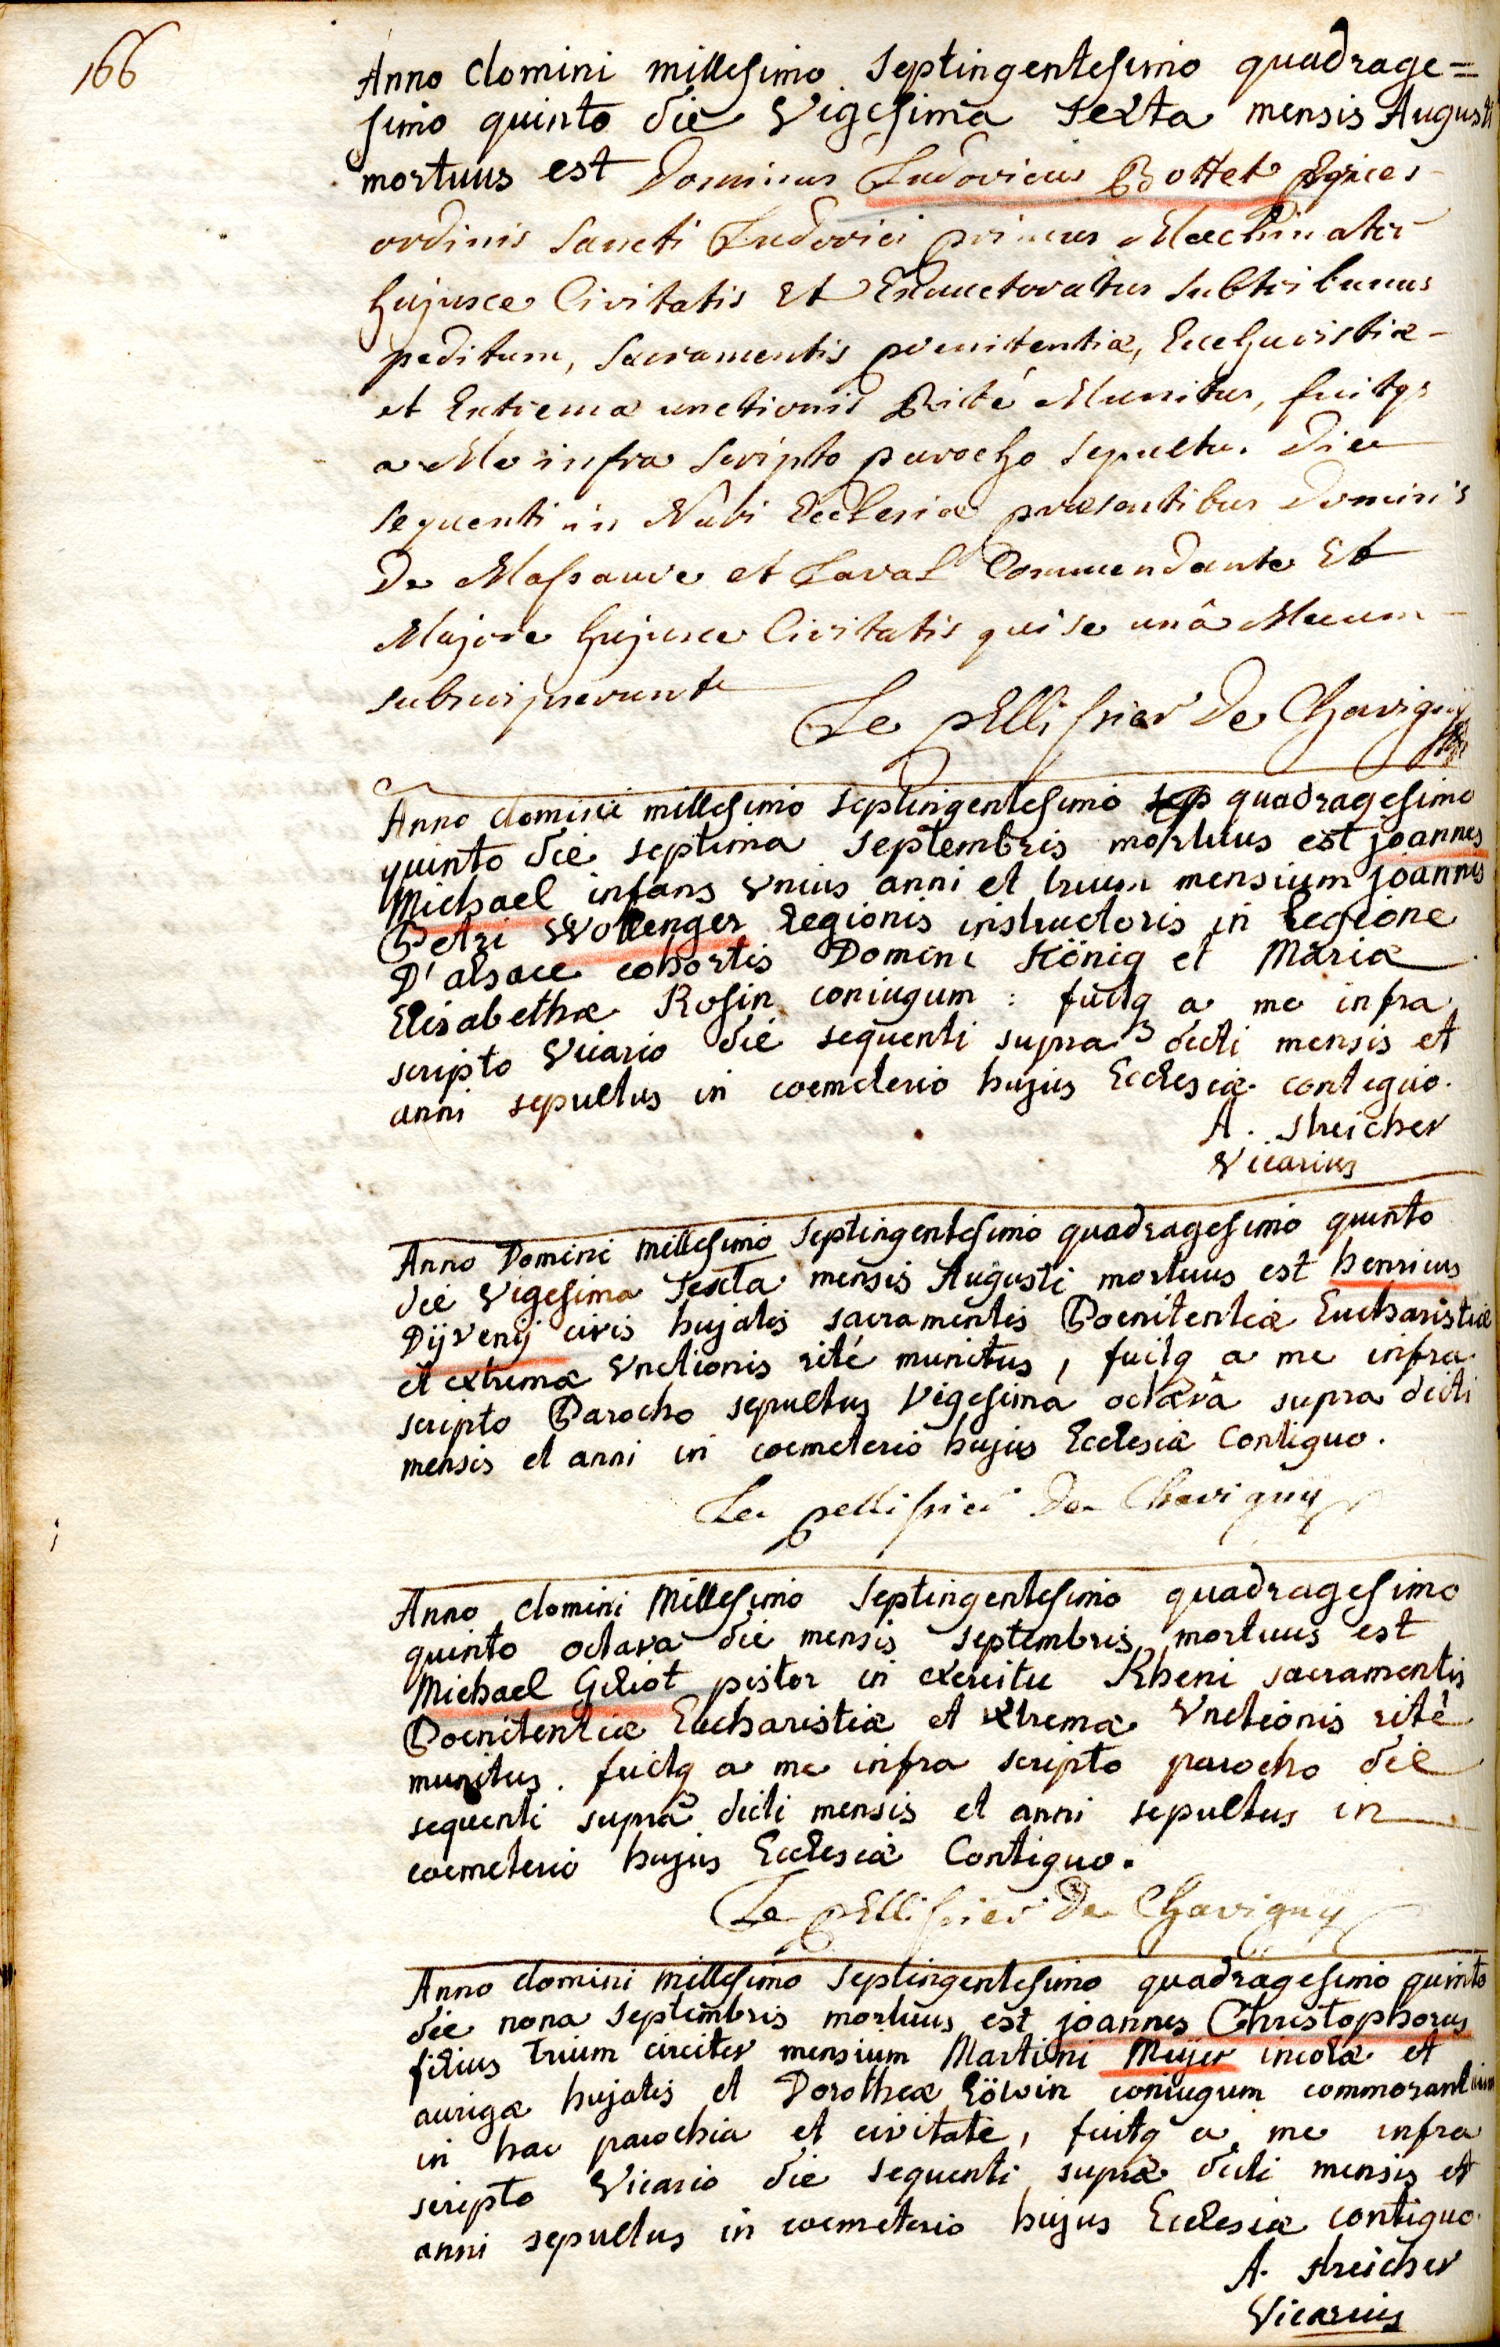 166
Anno domini millesimo septingentesimo quadrage=
simo quinto die Vigesima sexta mensis Augusti
mortuus est Dominus Ludovicus Bottet Eques
ordinis Sancti Ludovici primus Machinator
hujusce Civitatis Et Exauctoratus subtribunus
peditum, Sacramentis poenitentiæ, Eucharistiæ
et Extremæ unctionis Rité Munitus, fuitqs
a Me infra scripto parocho sepultus die
sequenti in Navi Ecclesiæ præsentibus Dominis
De Massauve et Laval Commendante Et
Majore hujusce Civitatis qui se unâ Mecum
subscripserunt
Le pEllissier De Chavignÿ
Anno domini millesimo septingentesimo sep quadragesimo
quinto die septima septembris mortuus est joannes
Michael infans Vnius anni et trium mensium joannis
Petri Wollenger legionis instructoris in legione
D'alsace cohortis Domini König et Mariæ
Elisabethæ Rosin coniugum : fuitq a me infra
scripto Vicario die sequenti supra dicti mensis et
anni sepultus in coemeterio hujus Ecclesiæ contiguo.
A. Streicher
Vicarius
Anno Domini millesimo septingentesimo quadragesimo quinto
die Vigesima sexta mensis Augusti mortuus est henricus
Dÿvenÿ civis hujatis sacramentis Poenitentiæ Eucharistiæ
et extremæ Vnctionis rité munitus, fuitq a me infra
scripto Parocho sepultus Vigesima octavâ supra dicti
mensis et anni in coemeterio hujus Ecclesiæ Contiguo.
Le pellissier De Chavignÿ
Anno domini Millesimo septingentesimo quadragesimo
quinto octava die mensis septembris mortuus est
Michael Geliot pistor in exercitu Rheni sacramentis
Poenitentiæ Eucharistiæ et extremæ Vnctionis rité
munitus. fuitq a me infra scripto parocho die
sequenti supra dicti mensis et anni sepultus in
coemeterio hujus Ecclesiæ Contiguo.
Le pEllissier De Chavignÿ
Anno domini millesimo septingentesimo quadragesimo quinto
die nona septembris mortuus est joannes Christophorus
filius trium circiter mensium Martini Meÿer incolæ et
aurigæ hujatis et Dorotheæ Löwin coniugum commorantium
in hac parochia et civitate, fuitq a me infra
scripto Vicario die sequenti supra dicti mensis et
anni sepultus in coemeterio hujus Ecclesiæ contiguo.
A. Streicher
Vicarius